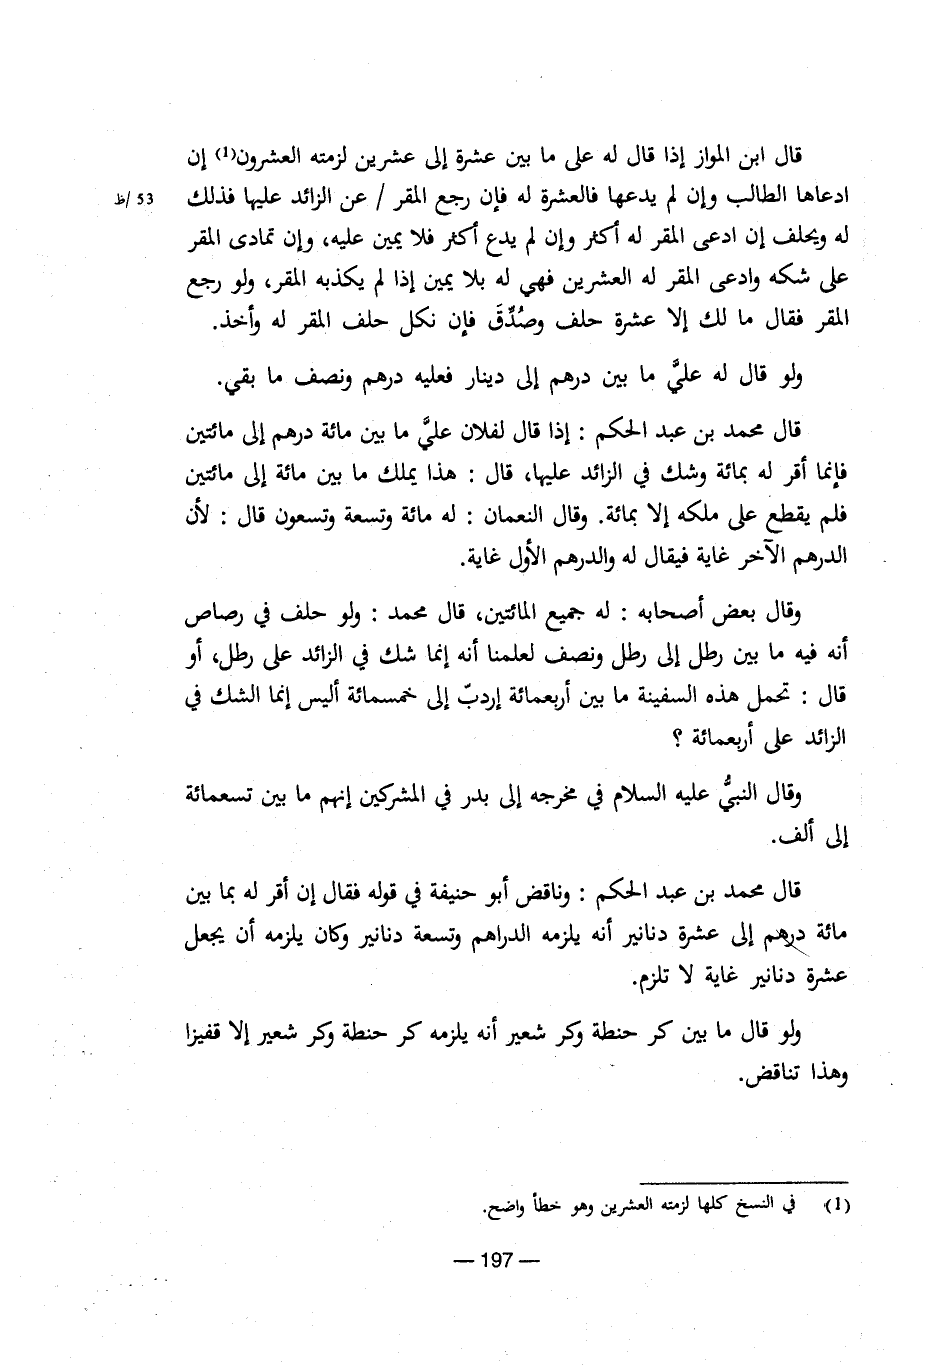 قال ابن المواز إذا قال له على ما بين عشرة إلى عشرين لزمته العشرون(1) إن
ادعاها الطالب وإن لم يدعها فالعشرة له فإن رجع المقر / عن الزائد عليها فذلك
53 /ظ
له ويحلف إن ادعى المقر له أكثر وإن لم يدع أكثر فلا يمين عليه، وإن تمادى المقر
على شكه وادعى المقر له العشرين فهي له بلا يمين إذا لم يكذبه المقر، ولو رجع
المقر فقال ما لك إلا عشرة حلف وصُدِّقَ فإن نكل حلف المقر له وأخذ.
ولو قال له عليَّ ما بين درهم إلى دينار فعليه درهم ونصف ما بقي.
قال محمد بن عبد الحكم : إذا قال لفلان عليَّ ما بين مائة درهم إلى مائتين
فإنما أقر له بمائة وشك في الزائد عليها، قال : هذا يملك ما بين مائة إلى مائتين
فلم يقطع على ملكه إلا بمائة. وقال النعمان : له مائة وتسعة وتسعون قال : لأن
الدرهم الآخر غاية فيقال له والدرهم الأول غاية.
وقال بعض أصحابه : له جميع المائتين، قال محمد : ولو حلف في رصاص
أنه فيه ما بين رطل إلى رطل ونصف لعلمنا أنه إنما شك في الزائد على رطل، أو
قال : تحمل هذه السفينة ما بين أربعمائة إردبّ إلى خمسمائة أليس إنما الشك في
الزائد على أربعمائة ؟
وقال النبيُّ عليه السلام في مخرجه إلى بدر في المشركين إنهم ما بين تسعمائة
إلى ألف.
قال محمد بن عبد الحكم : وناقض أبو حنيفة في قوله فقال إن أقر له بما بين
مائة درهم إلى عشرة دنانير أنه يلزمه الدراهم وتسعة دنانير وكان يلزمه أن يجعل
عشرة دنانير غاية لا تلزم.
ولو قال ما بين كر حنطة وكر شعير أنه يلزمه كر حنطة وكر شعير إلا قفيزا
وهذا تناقض.
(1) في النسخ كلها لزمته العشرين وهو خطأ واضح.
— 197 —